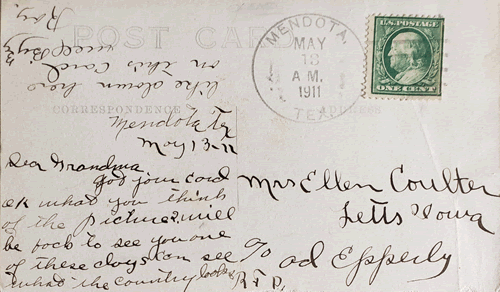 POST CARD
CORRESPONDENCE
ADDRESS
MENDOTA,
MAY
13
A.M.
1911
TEX.
U.S. POSTAGE
ONE CENT
Mendota, Tex
May 13-11
Dear Grandma
got your card
ok what you think
of the pictures. will
be back to see you one
of these days. can see
what the country looks
like down here
on this card
well By By
Roy.
Mrs Ellen Coulter
Letts Iowa
℅ ad Epperly
R.F.D.